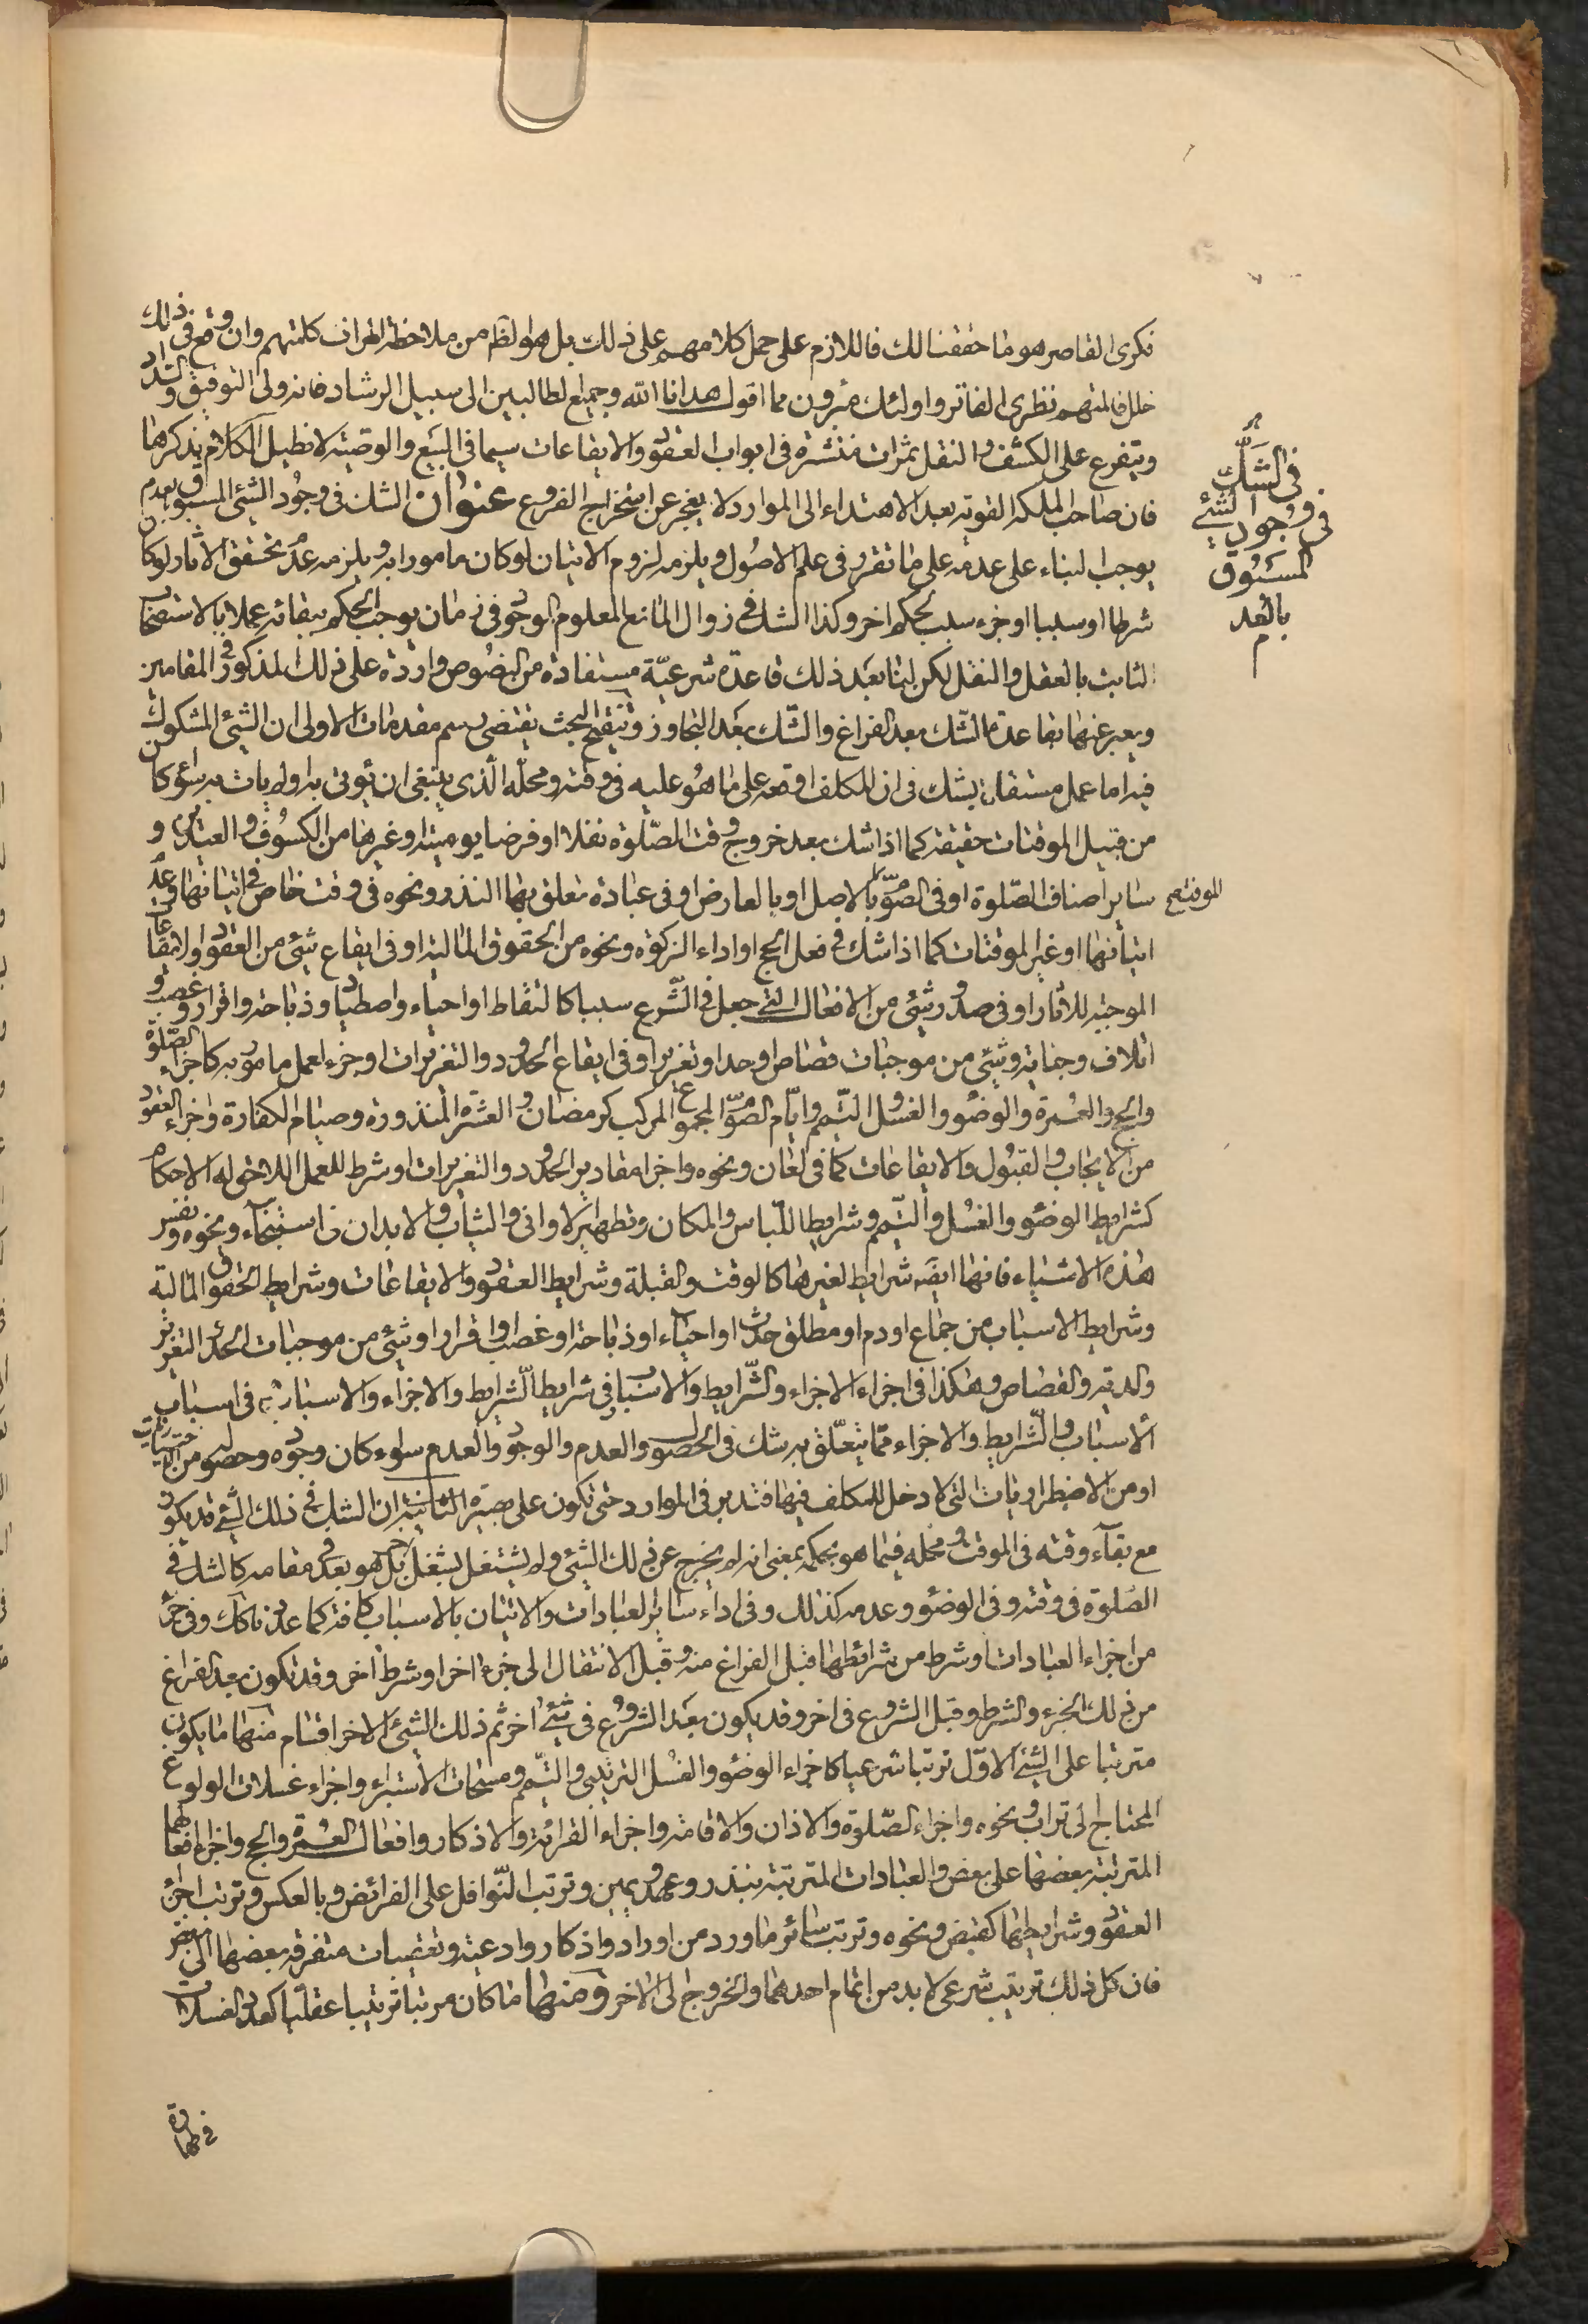 فكرى القاصر هو ما حققنا لك فاللازم على حمل كلامهم على ذلك بل هو لظم من ملاحظة اطراف كلمتهم وان وقع فى ذلك
خلل فالمتهم نظرى الفاتر واولئك مبرؤن مما اقول هدانا الله وجميع الطالبين الى سبيل الرشاد فانه ولى التوفيق والسداد
ويتفرع على الكشف والنقل ثمرات منتشرة فى ابواب العقود والايقاعات سيما فى البيع والوصية لا نطيل الكلام بذكرها
فان صاحب الملكة القوية بعد الاهتداء الى الموارد لا يعجز عن استخراج الفروع عنوان الشك فى وجود الشئ المسبوق بعدم
فى الشك
فى وجود الشئ
المسبوق
بالعدم
يوجب البناء على عدمه على ما تقرر فى علم الاصول ويلزمه لزوم الاتيان لو كان مامورا به ويلزمه عدم تحقق الاثار لو كان
شرطا او سببا او جزء سبب لحكم اخر وكذا الشك فى زوال المانع المعلوم الوجود فى زمان يوجب الحكم ببقائه عملا بالاستصحاب
الثابت بالعقل والنقل لكن لنا بعد ذلك قاعدة شرعية مستفادة من النصوص واردة على ذلك المذكور فى المقامين
ويعبر عنها بقاعدة الشك بعد الفراغ والشك بعد التجاوز وتنقيح البحث يقتضى رسم مقدمات الاولى ان الشئ المشكوك
فيه اما عمل مستقل يشك فى ان المكلف اوقعه على ما هو عليه فى وقته ومحله الذى ينبغى ان يؤتى به اولم يات به سواء كان
من قبيل الموقتات حقيقة كما اذا شك بعد خروج وقت الصلوة نفلا او فرضا يومية او غيرها من الكسوف والعيدين و
سائر اصناف الصلوة او فى الصوم بالاصل او بالعارض او فى عبادة متعلق بها النذر ونحوه فى وقت خاص فى اتيانها وعدم
اتيانها او غير الموقتات كما اذا شك فى فعل الحج او اداء الزكوة ونحوه من الحقوق المالية او فى ايقاع شئ من العقود او الايقاعات
الموجبة للاثار او فى صدور شئ من الافعال التى جعل فى الشرع سببا كالتقاط او احياء واصطياد وذباحة واقرار وغصب و
اتلاف وجناية وشئ من موجبات قصاص او حد او تعزير او فى ايقاع الحدود والتعزيرات او جزء لعمل مامور به كاجزاء الصلوة
والحج والعمرة والوضوء والغسل والتيمم وايام الصوم المجموع المركب كرمضان والعشرة المنذورة وصيام الكفارة واجزاء العقود
من الايجاب والقبول والايقاعات كما فى لعان ونحوه واجزاء مقادير الحدود والتعزيرات او شرط للعمل اللاحق له الاحكام
كشرايط الوضوء والغسل والتيمم وشرايط اللباس والمكان وتطهير الاوانى والثياب والابدان فى استنجاء ونحوه ونفس
هذه الاشياء فانها ايضا شرايط لغيرها كالوقت والقبلة وشرايط العقود والايقاعات وشرايط الحقوق المالية
وشرايط الاسباب من جماع او دم او مطلق حدث او احياء او ذباحة او غصب او اقرار او شئ من موجبات الحد والتعزير
والدية والقصاص وهكذا فى اجزاء الاجزاء والشرايط والاسباب فى شرايط الشرايط والاجزاء والاسباب فى اسباب
الاسباب والشرايط والاجزاء مما يتعلق به شك فى الحصول والعدم والوجود والعدم سواء كان وجوده وحصوله من
او من الاضطراريات التى لا دخل للمكلف فيها فتدبر فى الموارد حتى تكون على بصيرة الثانية ان الشك فى ذلك الشئ قد يكون
مع بقاء وقته فى الموقت ومحله فيما هو بحكمه بمعنى انه لم يخرج عن ذلك الشئ ولم يشتغل بشغل اخر بل هو بعد فى مقامه كالشك فى
الصلوة فى وقته وفى الوضوء وعدمه كذلك وفى اداء سائر العبادات والاتيان بالاسباب كافة كما عددناك وفى جزء
من اجزاء العبادات او شرط من شرائطها قبل الفراغ منه وقبل الانتقال الى جزء اخر او شرط اخر وقد تكون بعد الفراغ
من ذلك الجزء والشرط وقبل الشروع فى اخر وقد يكون بعد الشروع فى شئ اخر ثم ذلك الشئ الاخر اقسام منها ما يكون
مترتبا على الشئ الاول ترتبا شرعيا كاجزاء الوضوء والغسل الترتيبى والتيمم ومسحات الاستبراء واجزاء غسلات الولوغ
المحتاج الى تراب ونحوه واجزاء الصلوة والاذان والاقامة واجزاء القرائة والاذكار وافعال العمرة والحج واجزاء افعالهما
المترتبة بعضها على بعض والعبادات المترتبة بنذر وعهد ويمين وترتب النوافل على الفرائض وبالعكس وترتب اجزاء
العقود وشرايطها كقبض ونحوه وترتب سائر ما ورد من اوراد واذكار وادعية وتعقيبات متفرقة بعضها الى بعض
فان كل ذلك ترتيب شرعى لابد من اتمام احدهما والخروج الى الاخر ومنها ما كان مرتبا ترتيبا عقليا كعدد الغسلات
فى طهارة